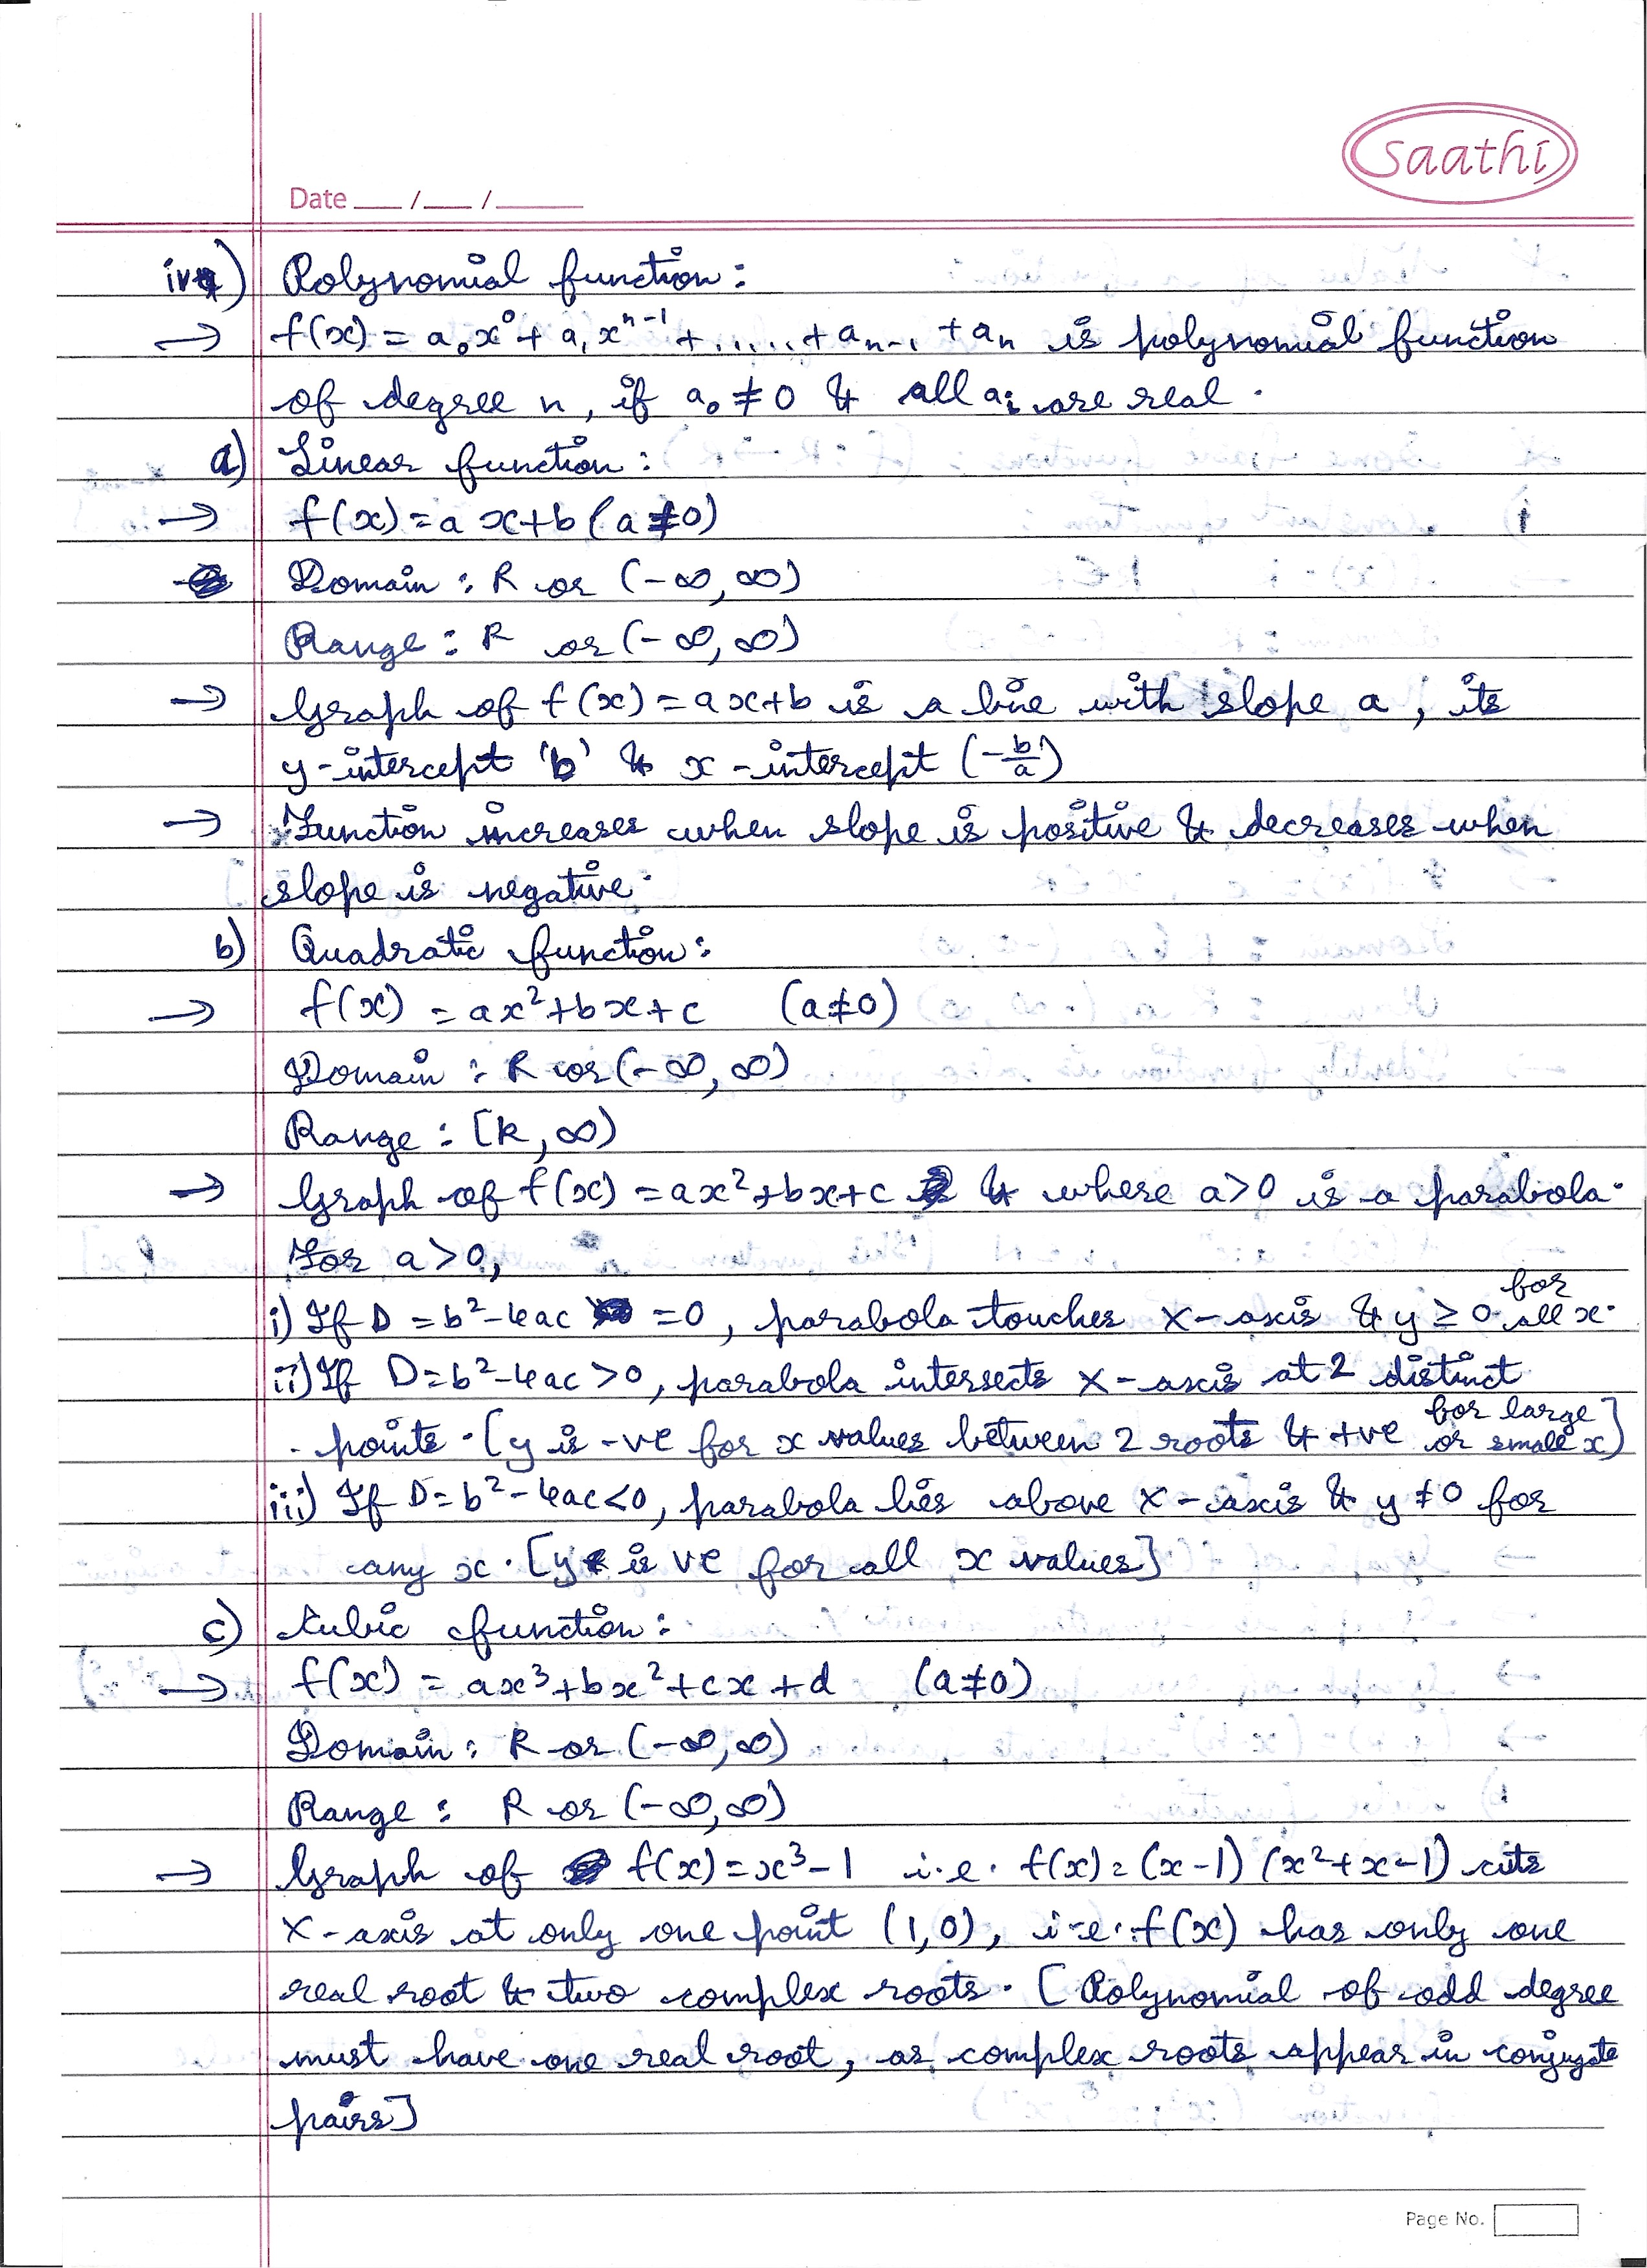 saathi
Date ___ / ___ / ______
iv) Polynomial function:
→ f(x) = a₀x⁰ + a₁xⁿ⁻¹ + ...... + aₙ₋₁ + aₙ is polynomial function
of degree n, if a₀ ≠ 0 & all aᵢ are real.
a) Linear function:
→ f(x) = ax+b (a≠0)
Domain : R or (-∞, ∞)
Range : R or (-∞, ∞)
→ Graph of f(x) = ax+b is a line with slope a, its
y-intercept 'b' & x-intercept (-b/a)
→ Function increases when slope is positive & decreases when
slope is negative.
b) Quadratic function:
→ f(x) = ax²+bx+c (a≠0)
Domain : R or (-∞, ∞)
Range : [k, ∞)
→ Graph of f(x) = ax²+bx+c & where a>0 is a parabola.
For a>0,
i) If D = b²-4ac =0, parabola touches X-axis & y ≥ 0 for all x.
ii) If D=b²-4ac >0, parabola intersects X-axis at 2 distinct
points. [y is -ve for x values between 2 roots & +ve for large or small x]
iii) If D=b²-4ac<0, parabola lies above X-axis & y ≠0 for
any x. [y is ve for all x values]
c) Cubic function:
→ f(x) = ax³+bx²+cx+d (a≠0)
Domain : R or (-∞, ∞)
Range : R or (-∞, ∞)
→ Graph of f(x)=x³-1 i.e. f(x)=(x-1) (x²+x-1) cuts
X-axis at only one point (1,0), i.e. f(x) has only one
real root & two complex roots. [Polynomial of odd degree
must have one real root, as complex roots appear in conjugate
pairs]
Page No.